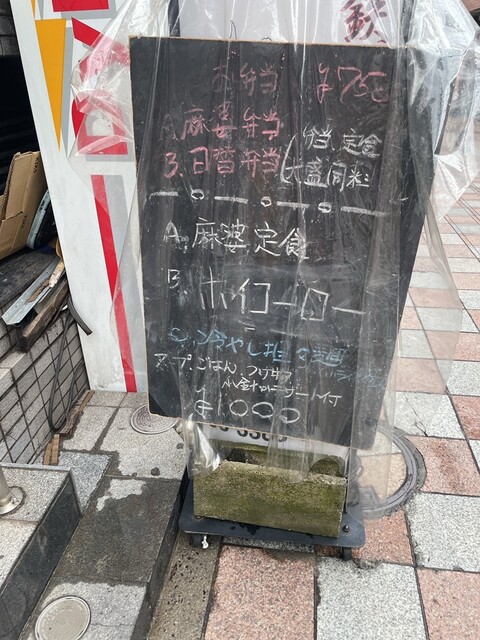 お弁当 ¥750
A.麻婆弁当
B.日替弁当
弁当、定食
大盛同料
A.麻婆定食
B.ホイコーロー
C.冷やし担々
スープ、ごはん、つけもの
小金杯デザート付
¥1000